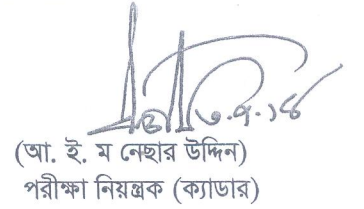 ৩.৭.১৪
(আ. ই. ম নেছার উদ্দিন)
পরীক্ষা নিয়ন্ত্রক (ক্যাডার)